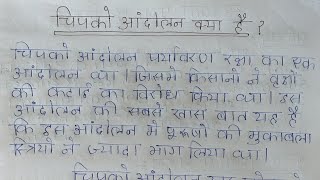 चिपको आंदोलन क्या है ?
चिपको आंदोलन पर्यावरण रक्षा का एक
आंदोलन था। जिसमे किसानों ने वृक्षों
की कटाई का विरोध किया था। इस
आंदोलन की सबसे खास बात यह है
कि इस आंदोलन में पुरूषों की मुकाबला
स्त्रियों ने ज्यादा भाग लिया था।
चिपको आंदोलन